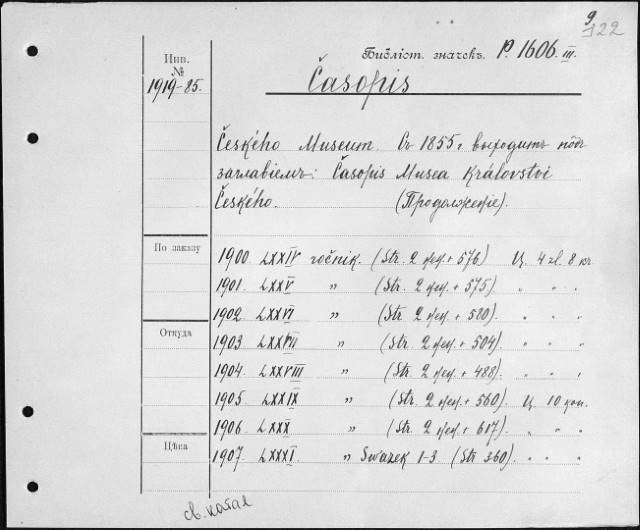 9
122
Библіот. значекъ. P. 1606. III.
Инв.
№
1919-85.
Časopis
Českého Museum. Съ 1855 г. выходитъ подъ
заглавіемъ: Časopis Musea Království
Českého. (Продолженіе).
По заказу
1900 LXXIV ročník. (Str. 2 + 576) Ц. 4 zl. 8 kr
1901. LXXV „ (Str. 2 + 575) „ „ „
1902. LXXVI „ (Str. 2 + 580) „ „ „
Откуда
1903 LXXVII „ (Str. 2 + 504) „ „ „
1904. LXXVIII „ (Str. 2 + 488). „ „ „
1905. LXXIX „ (Str. 2 + 560). Ц. 10
1906. LXXX „ (Str. 2 + 617) „ „ „
Цѣна
1907. LXXXI. „ Swazek 1-3. (Str 360). „ „ „
св. катал